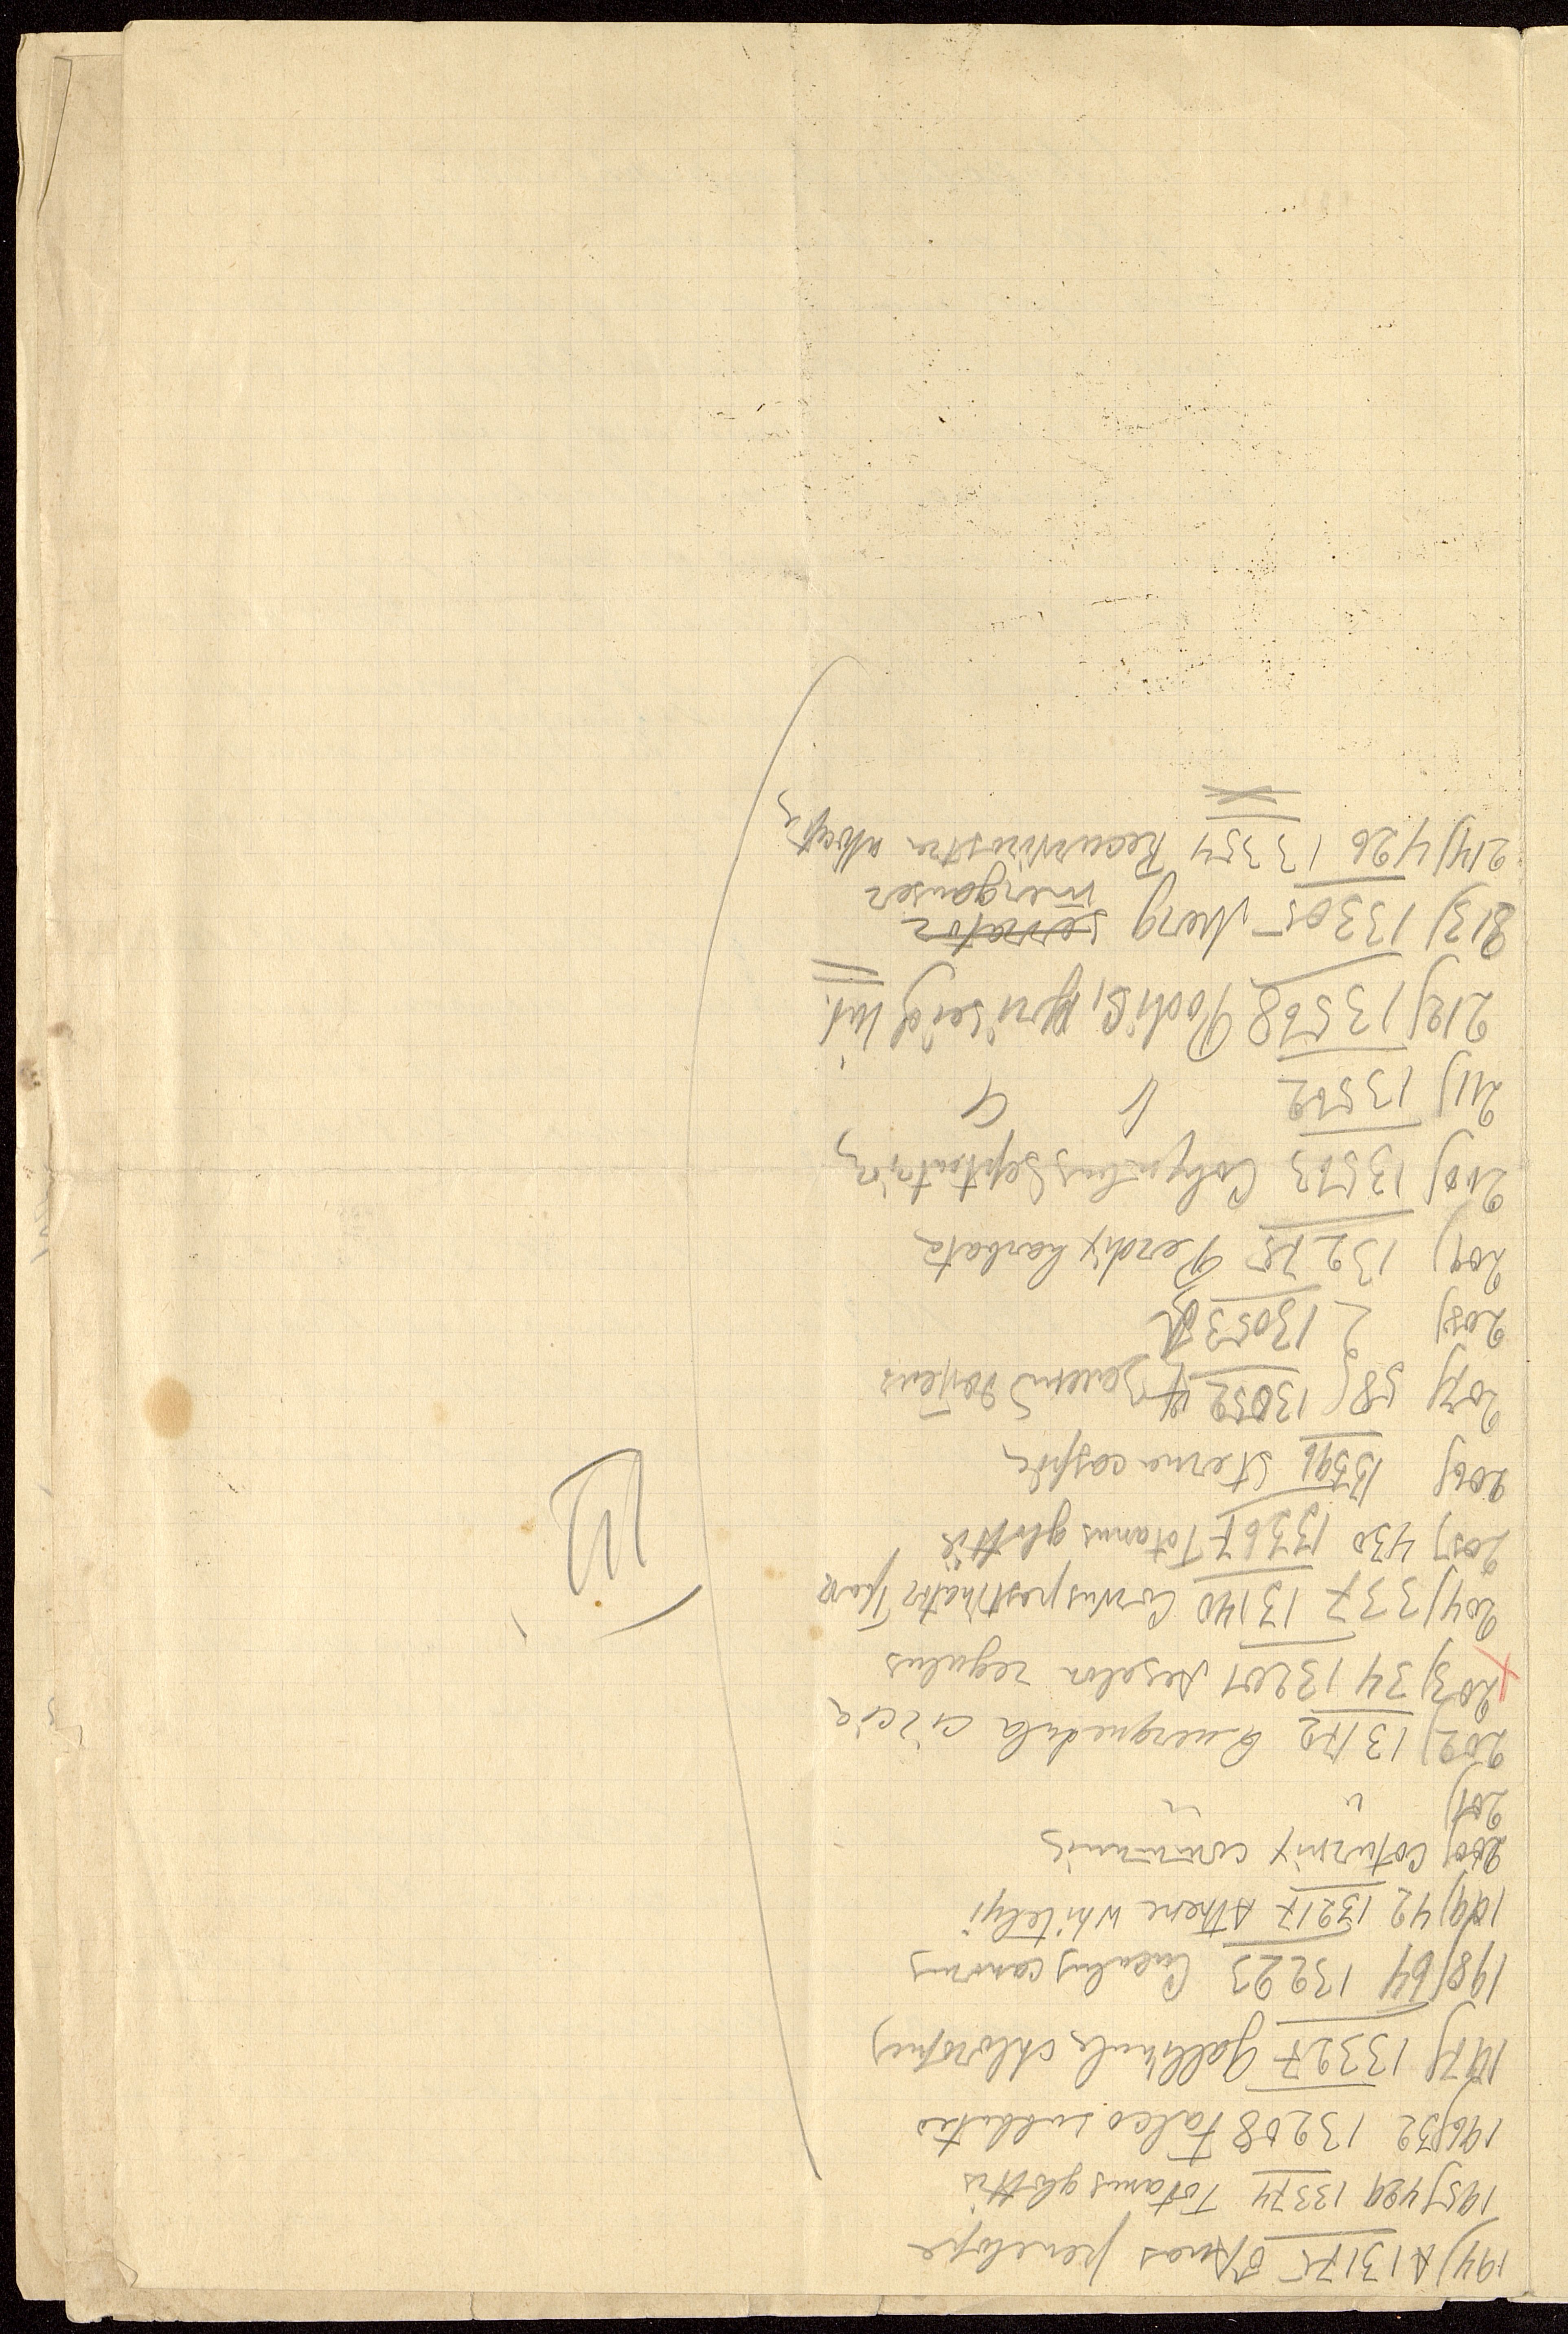 194) A 13175 Anas penelope
195) 429 13374 Totanus glottis
196) 32 13208 Falco subbuteo
197) 13327 Gallinula chloropus
198) 64 13223 Cuculus canorus
199) 42 13217 Athene whitelyi
200) Coturnix communis
201) " "
202) 13172 Querquedula circia
203) 34 13201 Aesalon regulus
204) 337 13140 Corvus pastinator
205) 430 13367 Totanus glottis
206) 13396 Sterna caspia
207) 58 13052
208) 13053
209) 13275 Perdix barbata
210) 13503 Colymbus septentrion
211) 13502 " "
212) 13568 Podic.
213) 13305 Merg serrator
merganser
214) 426 13354 Recurvirostra avocetta
III